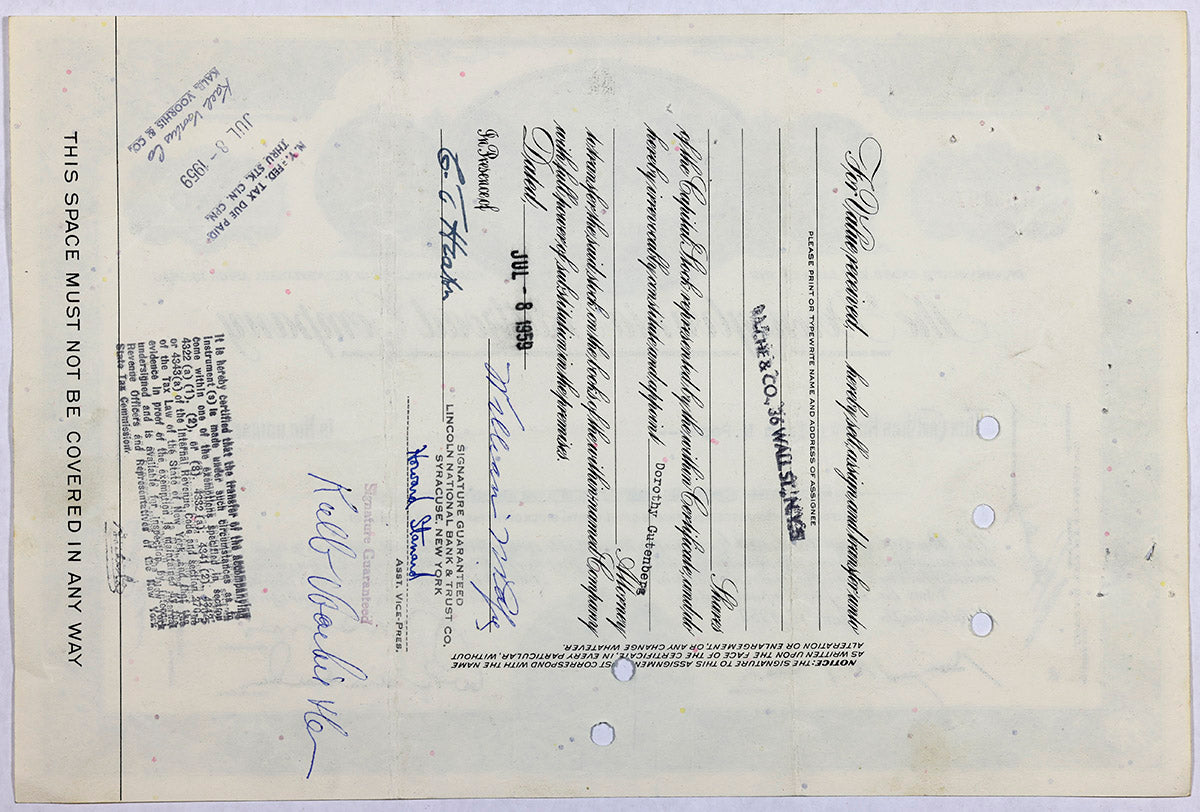 For Value received, hereby sell, assign and transfer unto
PLEASE PRINT OR TYPEWRITE NAME AND ADDRESS OF ASSIGNEE
BACHE & CO., 36 WALL ST., N.Y. 5
Shares
of the Capital Stock represented by the within Certificate, and do
hereby irrevocably constitute and appoint
Dorothy Gutenberg
Attorney
to transfer the said stock on the books of the within named Company
with full power of substitution in the premises.
Dated, JUL - 8 1959
In Presence of
NOTICE: THE SIGNATURE TO THIS ASSIGNMENT MUST CORRESPOND WITH THE NAME
AS WRITTEN UPON THE FACE OF THE CERTIFICATE, IN EVERY PARTICULAR, WITHOUT
ALTERATION OR ENLARGEMENT, OR ANY CHANGE WHATEVER.
SIGNATURE GUARANTEED
LINCOLN NATIONAL BANK & TRUST CO.
SYRACUSE, NEW YORK
Howard
ASST. VICE-PRES.
Signature Guaranteed
It is hereby certified that the transfer of the accompanying
instrument(s) is made under such circumstances as to
come within one of the exemptions specified in section
of the Tax Law of the State of New York
evidence in proof of the exemption is maintained
undersigned and is available for inspection by
Revenue Officers and Representatives of the New York
State Tax Commission.
N. Y. - FED TAX DUE PAID
THRU STK. CLN. CPN.
JUL 8 - 1959
KALB, VOORHIS & CO.
THIS SPACE MUST NOT BE COVERED IN ANY WAY